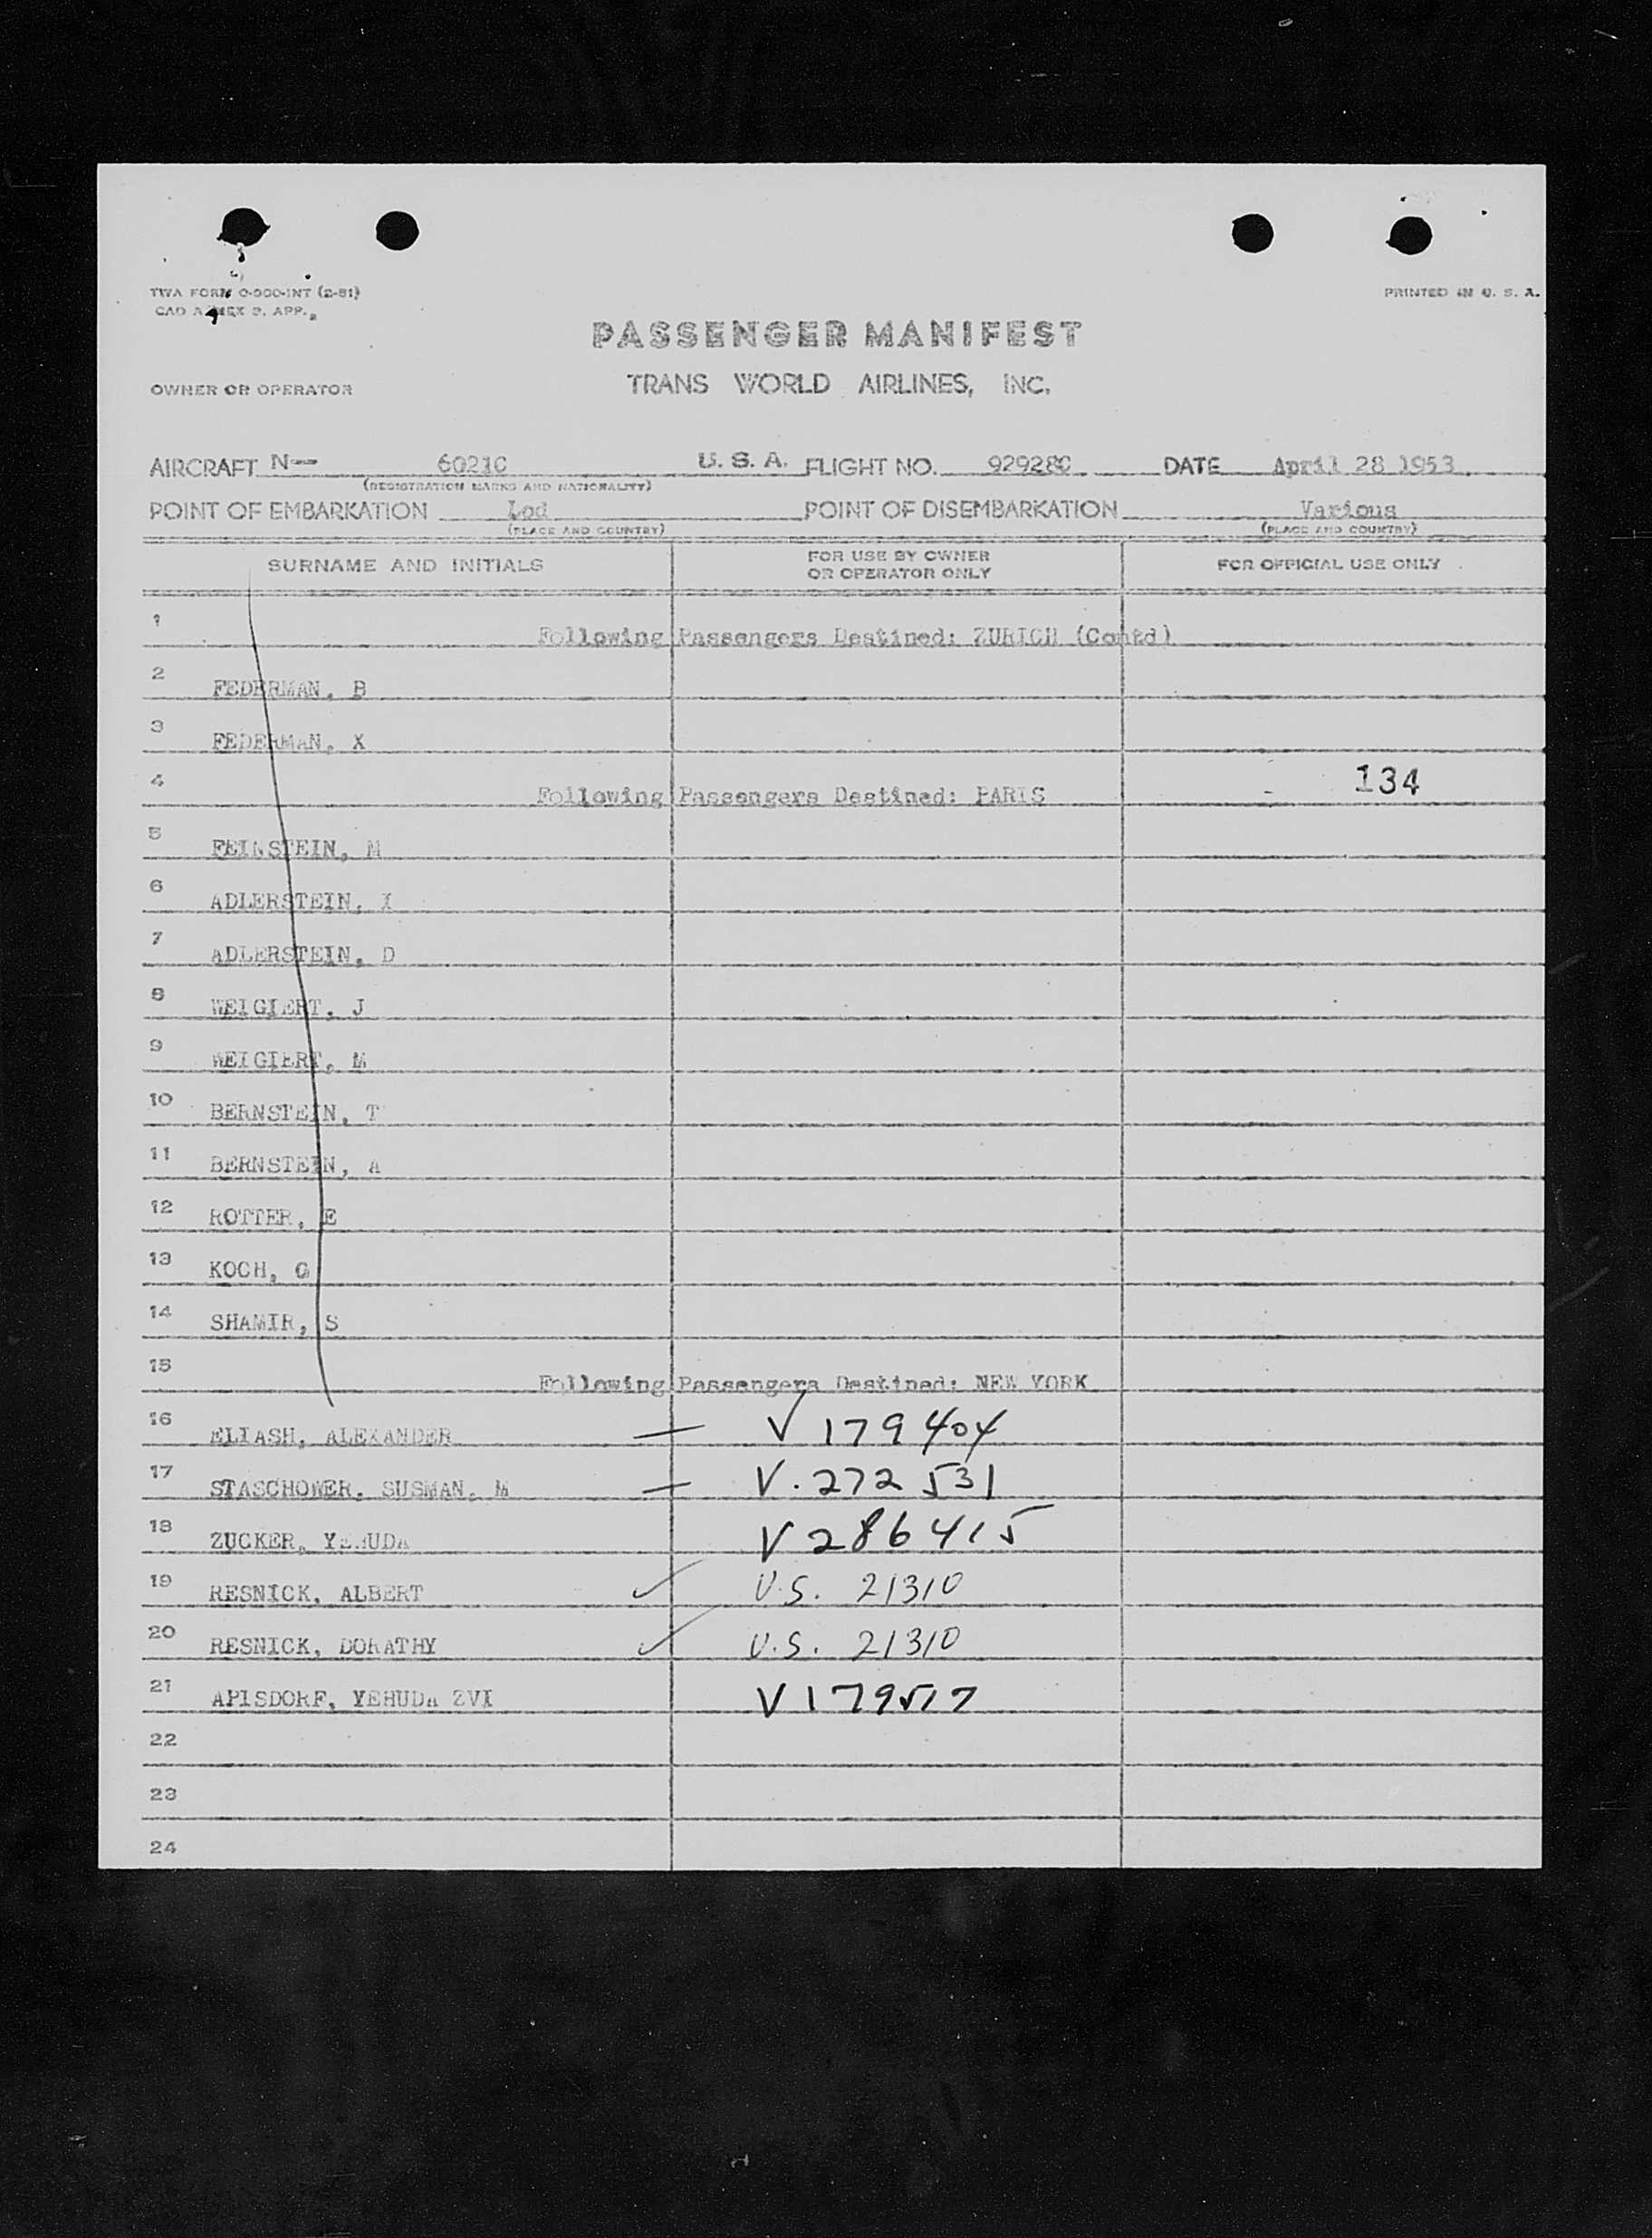 TWA FORM O-300-INT (2-51)
PRINTED IN U. S. A.
CAO ANNEX 9. APP. 2
PASSENGER MANIFEST
OWNER OR OPERATOR TRANS WORLD AIRLINES, INC.
AIRCRAFT N-- 6021C U. S. A. FLIGHT NO. 92928C DATE April 28 1953
(REGISTRATION MARKS AND NATIONALITY)
POINT OF EMBARKATION Lod POINT OF DISEMBARKATION Various
(PLACE AND COUNTRY) (PLACE AND COUNTRY)
SURNAME AND INITIALS FOR USE BY OWNER OR OPERATOR ONLY FOR OFFICIAL USE ONLY
1 Following Passengers Destined: ZURICH (Contd)
2 FEDERMAN, B
3 FEDERMAN, X
4 Following Passengers Destined: PARIS 134
5 FEINSTEIN, M
6 ADLERSTEIN,
7 ADLERSTEIN, D
8 WEIGIERT, J
9 WEIGIERT, M
10 BERNSTEIN, T
11 BERNSTEIN, A
12 ROTTER, E
13 KOCH, G
14 SHAMIR, S
15 Following Passengers Destined: NEW YORK
16 ELIASH, ALEXANDER — V 179404
17 STASCHOWER, SUSMAN, M — V. 272531
18 ZUCKER, YEHUDA V 286415
19 RESNICK, ALBERT ✓ U.S. 21310
20 RESNICK, DORATHY ✓ U.S. 21310
21 APISDORF, YEHUDA ZVI V 179517
22
23
24